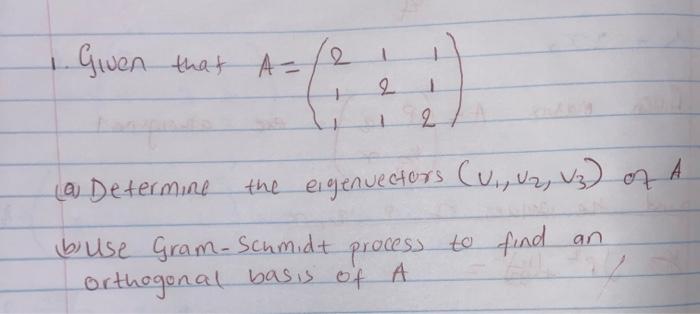 1. Given that A = (2 1 1
1 2 1
1 1 2)
(a) Determine the eigenvectors (V1, V2, V3) of A
(b) Use Gram-Schmidt process to find an
orthogonal basis of A